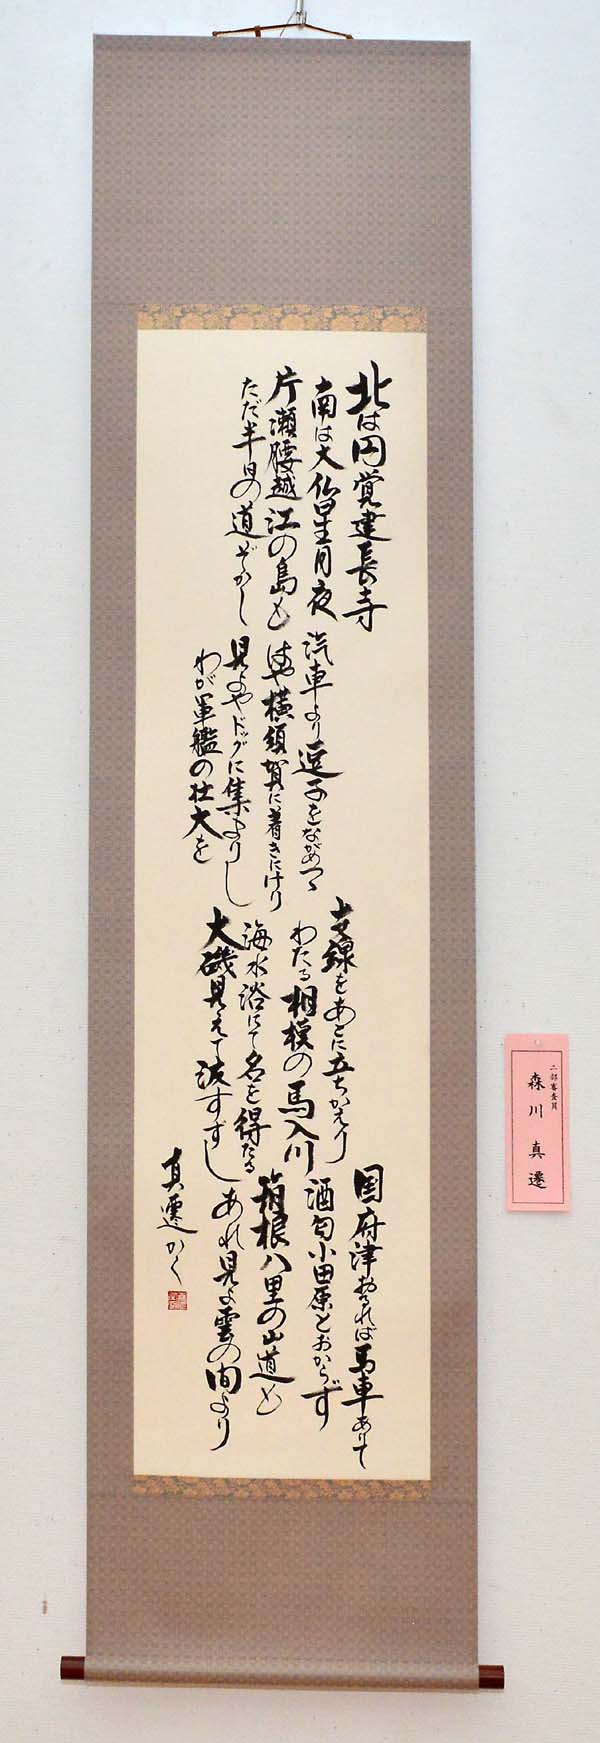 北は円覚建長寺
南は大仏星月夜
片瀬腰越江の島も
ただ半日の道ぞかし
汽車より逗子をながめつゝ
はや横須賀に着きにけり
見よやドックに集まりし
わが軍艦の壮大を
支線をあとに立ちかえり
わたる相模の馬入川
海水浴にて名を得たる
大磯見えて波すずし
国府津おれば馬車ありて
酒匂小田原とおからず
箱根八里の山道も
あれ見よ雲の間より
真遷かく
二部審査員
森川真遷